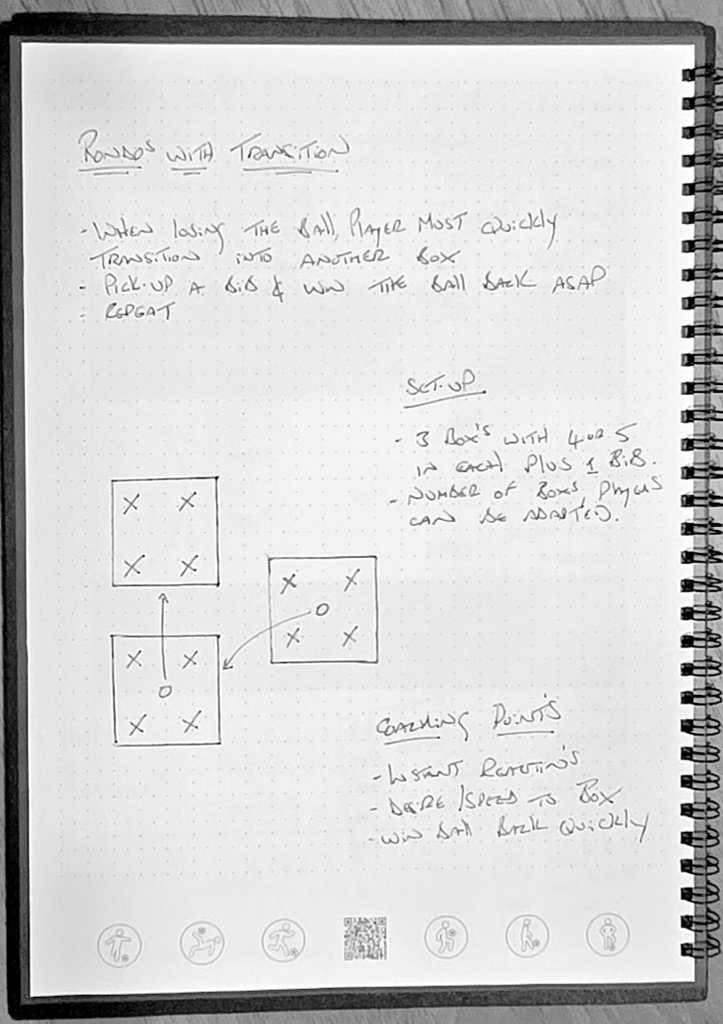 RONDOS WITH TRANSITION
- WHEN LOSING THE BALL, PLAYER MUST QUICKLY
TRANSITION INTO ANOTHER BOX
- PICK-UP A BIB & WIN THE BALL BACK ASAP
: REPEAT
SET-UP
- 3 BOX'S WITH 4 OR 5
IN EACH PLUS 1 BIB.
- NUMBER OF BOXES, PLAYERS
CAN BE ADAPTED.
X X
X X
X X
O
X X
X X
O
X X
COACHING POINT'S
- INSTANT REACTION'S
- DESIRE / SPEED TO BOX
- WIN BALL BACK QUICKLY